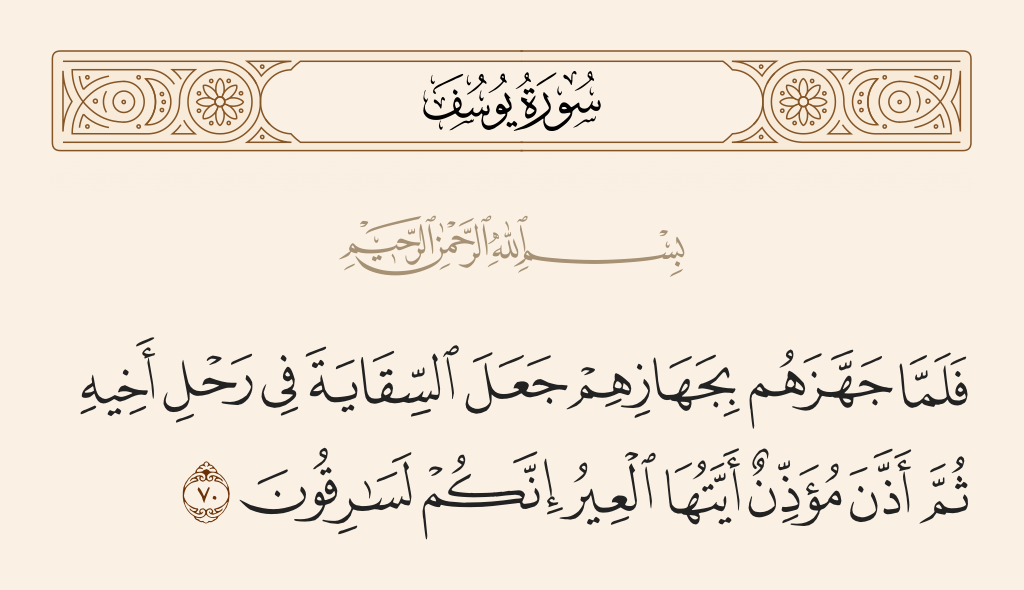 سُورَةُ يُوسُفَ
بِسْمِ ٱللَّهِ ٱلرَّحْمَٰنِ ٱلرَّحِيمِ
فَلَمَّا جَهَّزَهُم بِجَهَازِهِمْ جَعَلَ ٱلسِّقَايَةَ فِى رَحْلِ أَخِيهِ
ثُمَّ أَذَّنَ مُؤَذِّنٌ أَيَّتُهَا ٱلْعِيرُ إِنَّكُمْ لَسَـٰرِقُونَ ٧٠